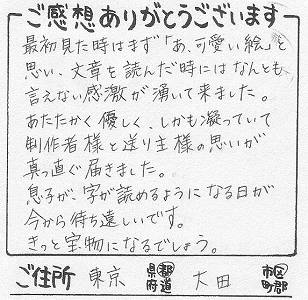 ご感想ありがとうございます
最初見た時はまず「あ、可愛い絵」と
思い、文章を読んだ時にはなんとも
言えない感激が湧いて来ました。
あたたかく優しく、しかも凝っていて
制作者様と送り主様の思いが
真っ直ぐ届きました。
息子が、字が読めるようになる日が
今から待ち遠しいです。
きっと宝物になるでしょう。
ご住所 東京 都道府県 大田 市区町郡